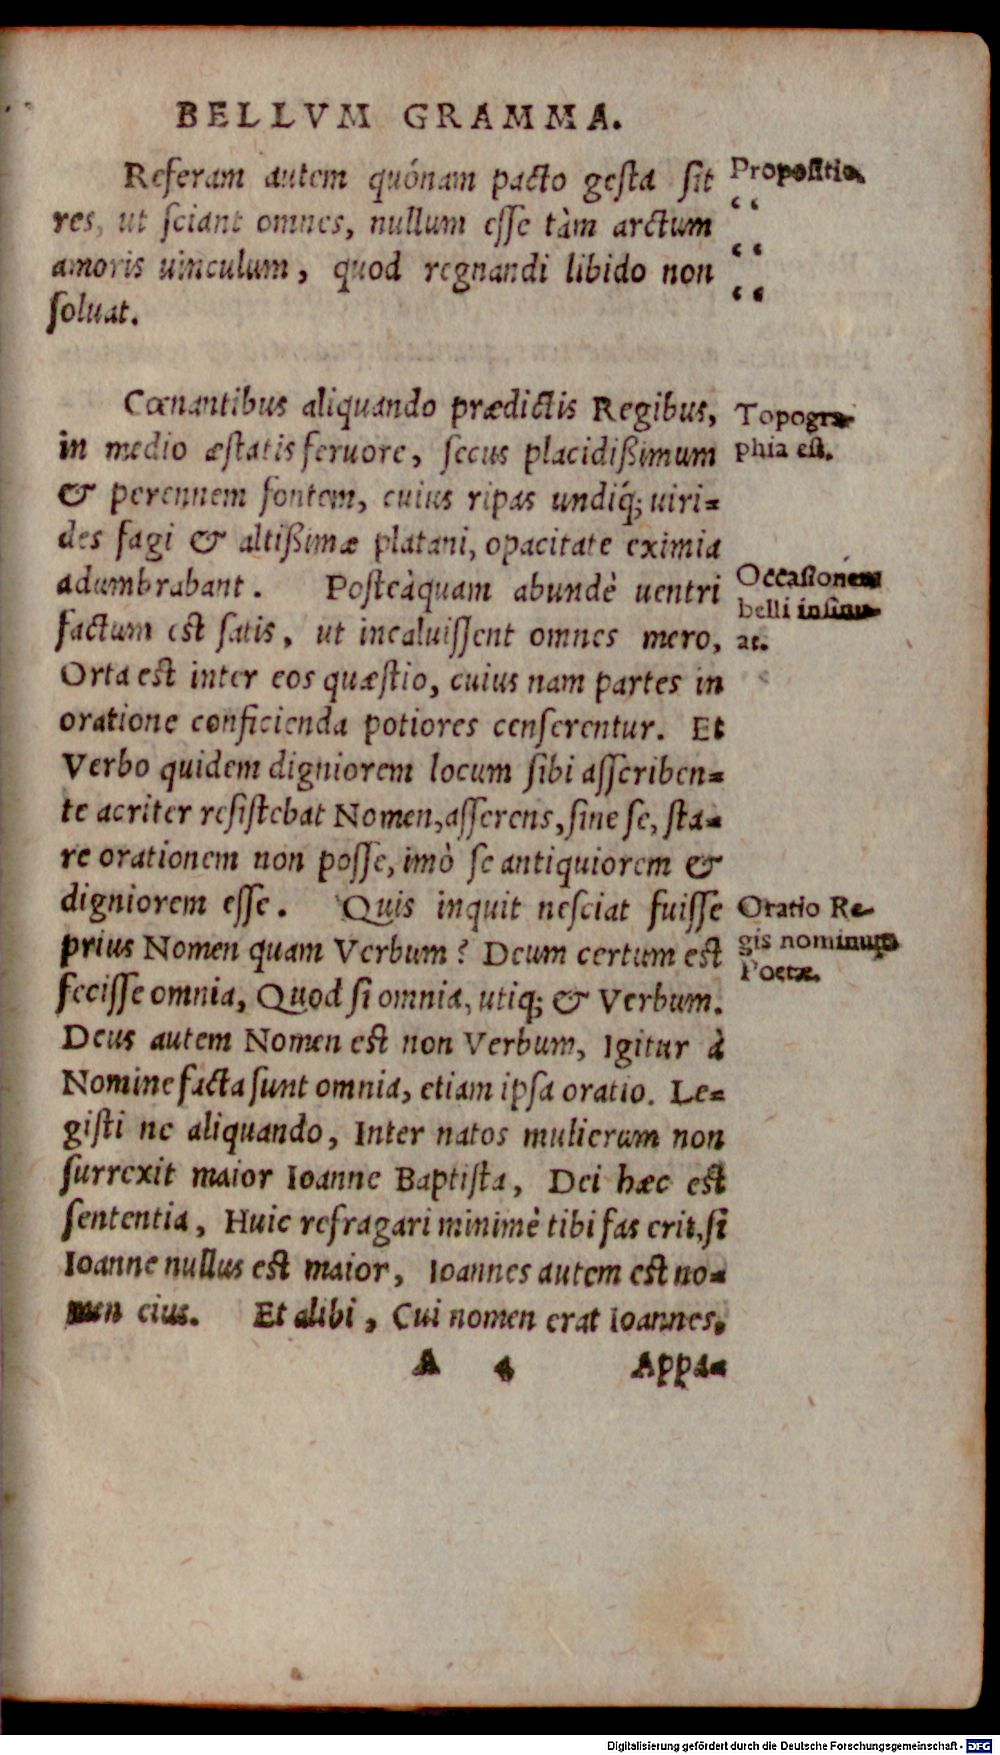 BELLVM GRAMMA.
Referam autem quónam pacto gesta sit
res, ut sciant omnes, nullum esse tàm arctum
amoris uinculum, quod regnandi libido non
soluat.
Propositio.
“
“
“
Cœnantibus aliquando prædictis Regibus,
in medio æstatis feruore, secus placidißimum
& perennem fontem, cuius ripas undiq́; uiri=
des fagi & altißimæ platani, opacitate eximia
adumbrabant. Posteàquam abundè uentri
factum est satis, ut incaluissent omnes mero,
Orta est inter eos quæstio, cuius nam partes in
oratione conficienda potiores censerentur. Et
Verbo quidem digniorem locum sibi asscriben=
te acriter resistebat Nomen, asserens, sine se, sta=
re orationem non posse, imò se antiquiorem &
digniorem esse. Quis inquit nesciat fuisse
prius Nomen quam Verbum? Deum certum est
fecisse omnia, Quod si omnia, utiq; & Verbum.
Deus autem Nomen est non Verbum, Igitur à
Nomine facta sunt omnia, etiam ipsa oratio. Le=
gisti ne aliquando, Inter natos mulierum non
surrexit maior Ioanne Baptista, Dei hæc est
sententia, Huic refragari minimè tibi fas erit, si
Ioanne nullus est maior, Ioannes autem est no=
men eius. Et alibi, Cui nomen erat Ioannes.
Topogra-
phia est.
Occasionem
belli insinu-
at.
Oratio Re-
gis nominum
Poetæ.
A 4 Appa=
Digitalisierung gefördert durch die Deutsche Forschungsgemeinschaft - DFG